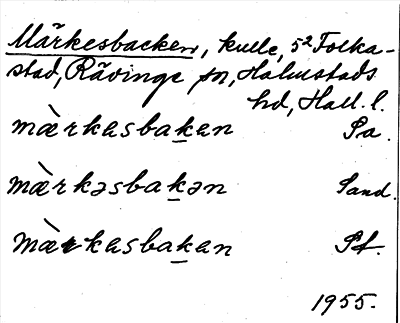 Märkesbacken, kulle, 5² Folka-
stad, Rävinge sn, Halmstads
hd, Hall. l.
mæ̀rkasbaḵan Pa.
mæ̀rkəsbaḵən Sand.
mæ̀rkasbaḵan Pf.
1955.